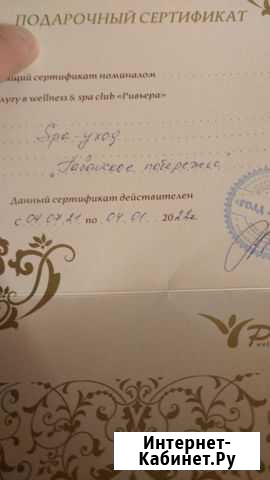 ПОДАРОЧНЫЙ СЕРТИФИКАТ
ящий сертификат номиналом
слугу в wellness & spa club «Ривьера»
Spa-уход
"Гавайское побережье"
Данный сертификат действителен
с 04.07.21 по 04.01. 2022г
Интернет-
Кабинет.Ру